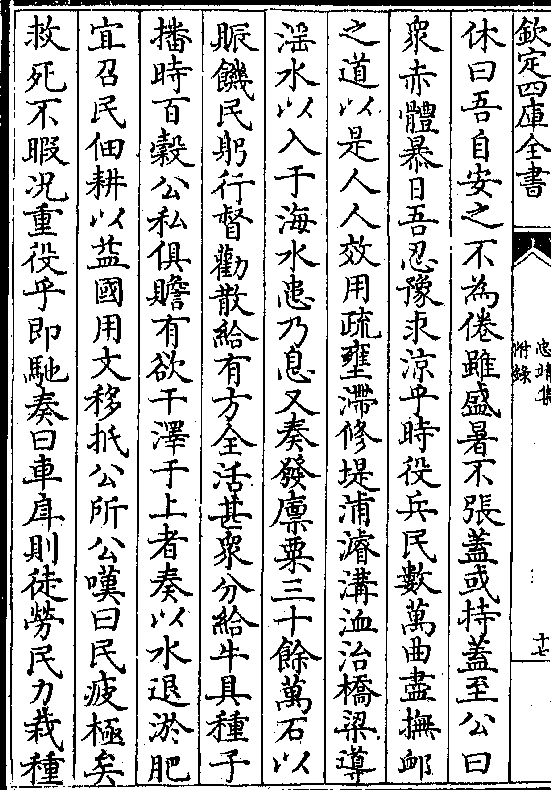 欽定四庫全書
忠靖集
附錄
十七
休曰吾自安之不為倦雖盛暑不張蓋或持蓋至公曰
衆赤體暴日吾忍豫求涼乎時役兵民數萬曲盡撫卹
之道以是人人效用疏壅滯修堤浦濬溝洫治橋梁導
滛水以入于海水患乃息又奏發廪粟三十餘萬石以
賑饑民躬行督勸散給有方全活甚衆分給牛具種子
播時百穀公私俱贍有欲干澤于上者奏以水退淤肥
宜召民佃耕以益國用文移抵公所公嘆曰民疲極矣
救死不暇况重役乎即馳奏曰車戽則徒勞民力栽種